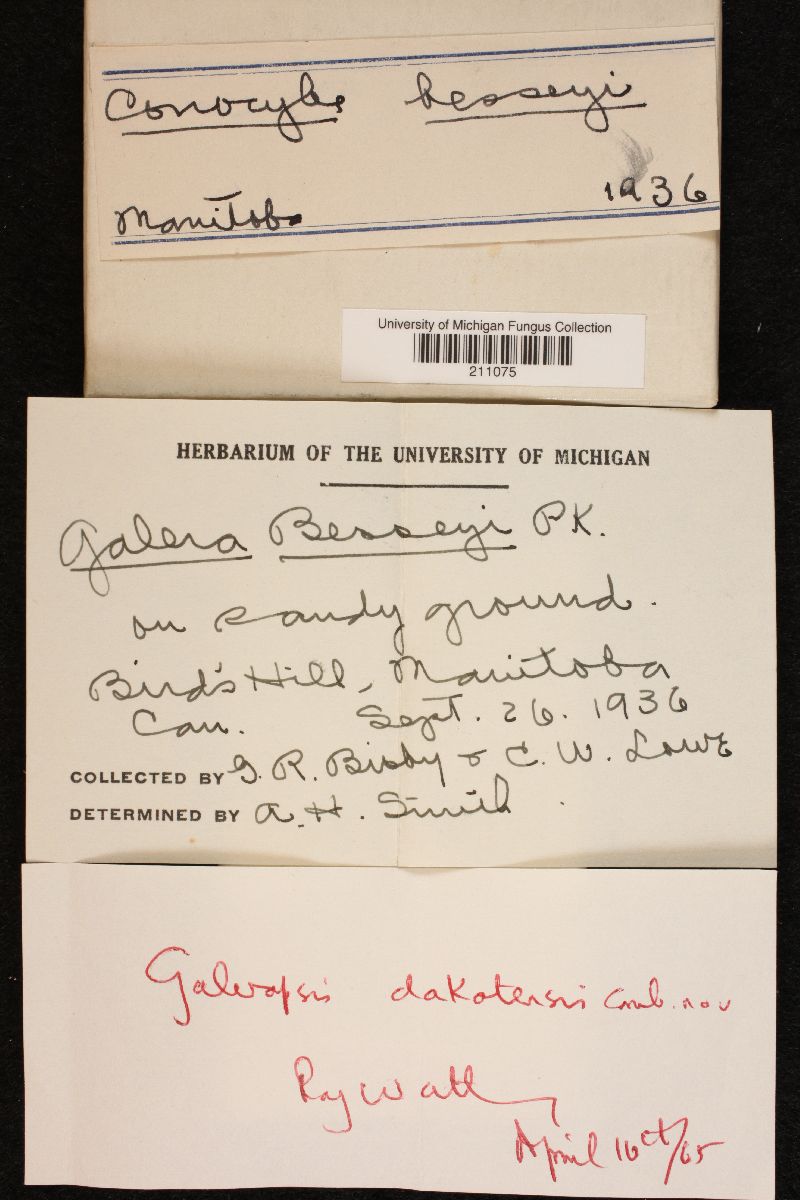 Conocybe besseyi
Manitoba 1936
University of Michigan Fungus Collection
211075
HERBARIUM OF THE UNIVERSITY OF MICHIGAN
Galera Besseyi PK.
on sandy ground.
Bird's Hill, Manitoba
Can. Sept. 26. 1936
COLLECTED BY G. R. Bisby & C. W. Lowe
DETERMINED BY A. H. Smith
Galeropsis dakotensis comb. nov
Roy Watling
April 16ct/65